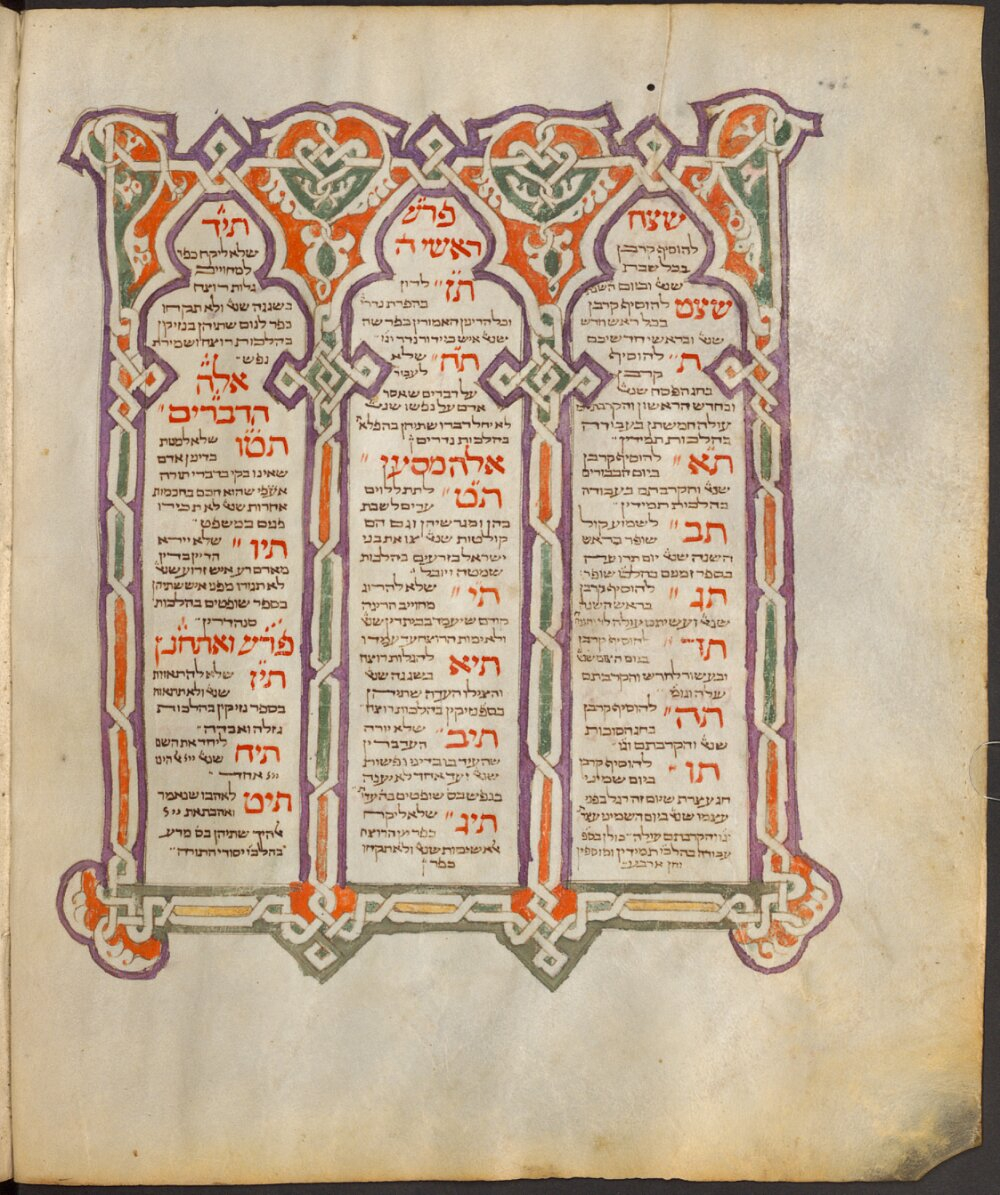 שצח
להוסיף קרבן
בכל שבת
שנ׳ וביום השבת
שצט להוסיף קרבן
בכל ראש חדש
שנ׳ ובראשי חדשיכם
ת׳ להוסיף
קרבן
בחג הפסח שנ׳
ובחדש הראשון והקרבתם
עולה חמשתן בעבודה
בהלכות תמידין
תא להוסיף קרבן
ביום הבכורים
שנ׳ והקרבתם בעבודה
בהלכות תמידין
תב לשמוע קול
שופר בראש
השנה שנ׳ יום תרועה
בספר זמנים בהלכו׳ שופר
תג להוסיף קרבן
בראש השנה
שנ׳ ועשיתם עולה
תד להוסיף קרבן
ביום הצום שנ׳
ובעשור לחדש והקרבתם
עולה וגומ׳
תה להוסיף קרבן
בחג הסוכות
שנ׳ והקרבתם וגו׳
תו להוסיף קרבן
ביום שמיני
חג עצרת שיום זה רגל בפני
עצמו שנ׳ ביום השמיני עצר׳
והקרבתם עולה כולן בספ׳
עבודה בהלכו׳ תמידין ומוספין
והן ארבעי׳
פרש׳
ראשי ה
תז לדין
בהפרת נדרי׳
וכל הדינין האמורין בפרשה
שנ׳ איש כי ידור נדר וגו׳
תח שלא
לעבור
על דברים שאסר
אדם על נפשו שנ׳
לא יחל דברו שתיהן בהפלא׳
בהלכות נדרים
אלה מסעי
תט לתת ללוים
ערים לשבת
בהן ומגרשיהן וגם הם
קולטות שנ׳ צו את בני
ישראל בזרעים בהלכות
שמטה ויובל
תי שלא להרוג
מחוייב הריגה
קודם שיעמד בבית דין שנ׳
ולא ימות הרוצח עד עמדו
תיא להגלות רוצח
בשגגה שנ׳
והצילו העדה שתיהן
בס׳ נזיקין בהלכות רוצח
תיב שלא יורה
העד בדין
שהעיד בו בדיני נפשות
שנ׳ ועד אחד לא יענה
בנפש בס׳ שופטים בה׳ עדו׳
תיג שלא ליקח
כפר מן הרוצח
אשימות שנ׳ ולא תקחו
כפר
תיד
שלא ליקח כפר
למחוייב
גלות רוצח
בשגגה שנ׳ ולא תקחו
כפר לנוס שתיהן בנזיקין
בהלכות רוצח ושמירת
נפש
אלה
הדברים
תטו שלא למנות
בדיינין אדם
שאינו בקי בדברי תורה
אעפ׳ שהוא חכם בחכמות
אחרות שנ׳ לא תכירו
פנים במשפט
תיו שלא יירא
הדיין בדין
מאדם רע איש זרוע שנ׳
לא תגורו מפני איש שתיהן
בספר שופטים בהלכות
סנהדרין
פרש׳ ואתחנן
תיז שלא להתאוות
שנ׳ ולא תתאוה
בספר נזיקין בהלכות
גזלה ואבדה
תיח ליחד את השם
שנ׳ ייי אלהינו
ייי אחד
תיט לאהבו שנאמר
ואהבת את ייי
אלהיך שתיהן בס׳ מדע
בהלכו׳ יסודי התורה